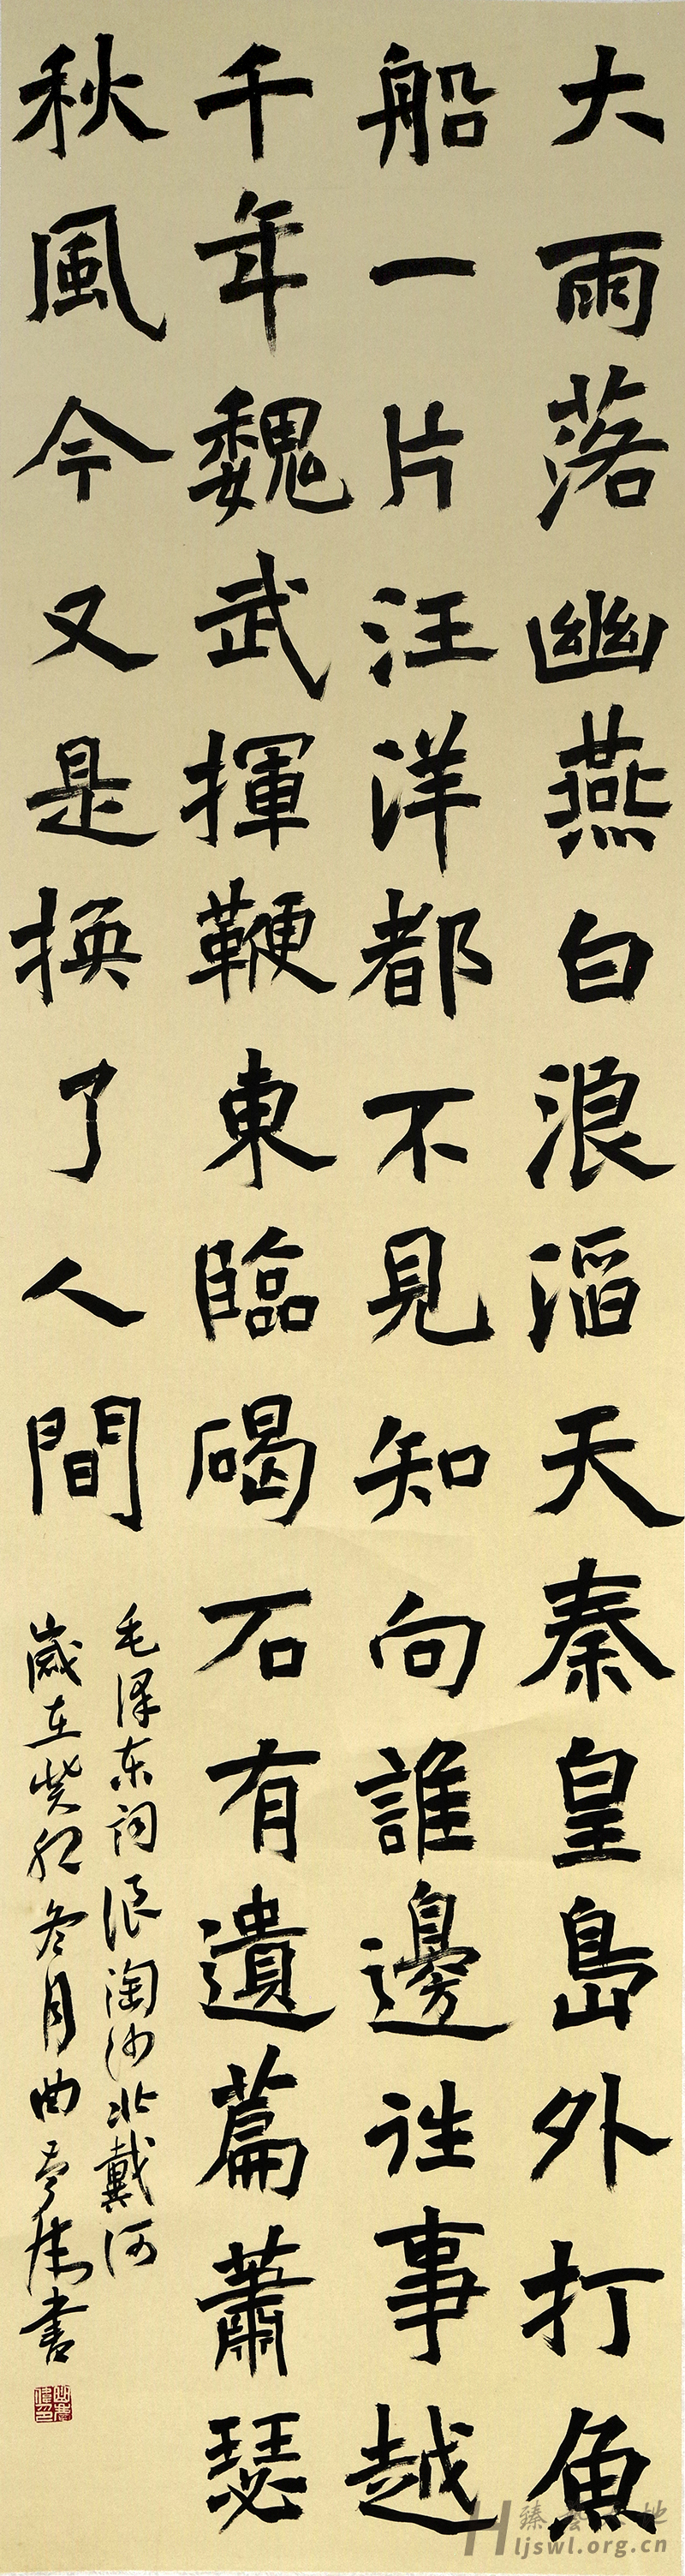 大雨落幽燕白浪滔天秦皇島外打魚
船一片汪洋都不見知向誰邊往事越
千年魏武揮鞭東臨碣石有遺篇蕭瑟
秋風今又是換了人間
毛泽东词浪淘沙北戴河
歲在癸巳冬月曲
書
ljswl.org.cn